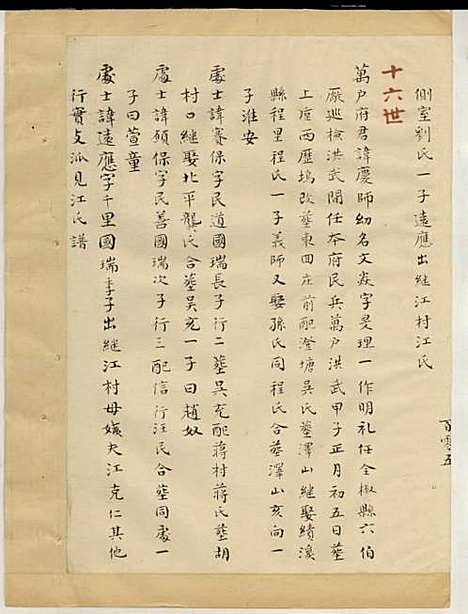 側室劉氏一子遠應出繼江村江氏
十六世
萬戶府君諱慶師幼名文焱字旻理一作明礼任全椒縣六伯
廠巡檢洪武開任本府民兵萬戶洪武甲子正月初五日塟
上瘦西歷塢改塟東四庄前配澄塘吳氏塟澤山継娶績溪
縣程里程氏一子義師又娶孫氏同程氏合塟澤山亥向一
子淮安
處士諱賽保字民道國瑞長子行二塟吳充配蔣村蔣氏塟胡
村口継娶北平龔氏合塟吳充一子曰趙奴
處士諱預保字民善國瑞次子行三配信行汪氏合塟同處一
子曰萱童
處士諱遠應字千里國瑞季子出継江村母姨夫江克仁其他
行實支派見江氏譜
百零五